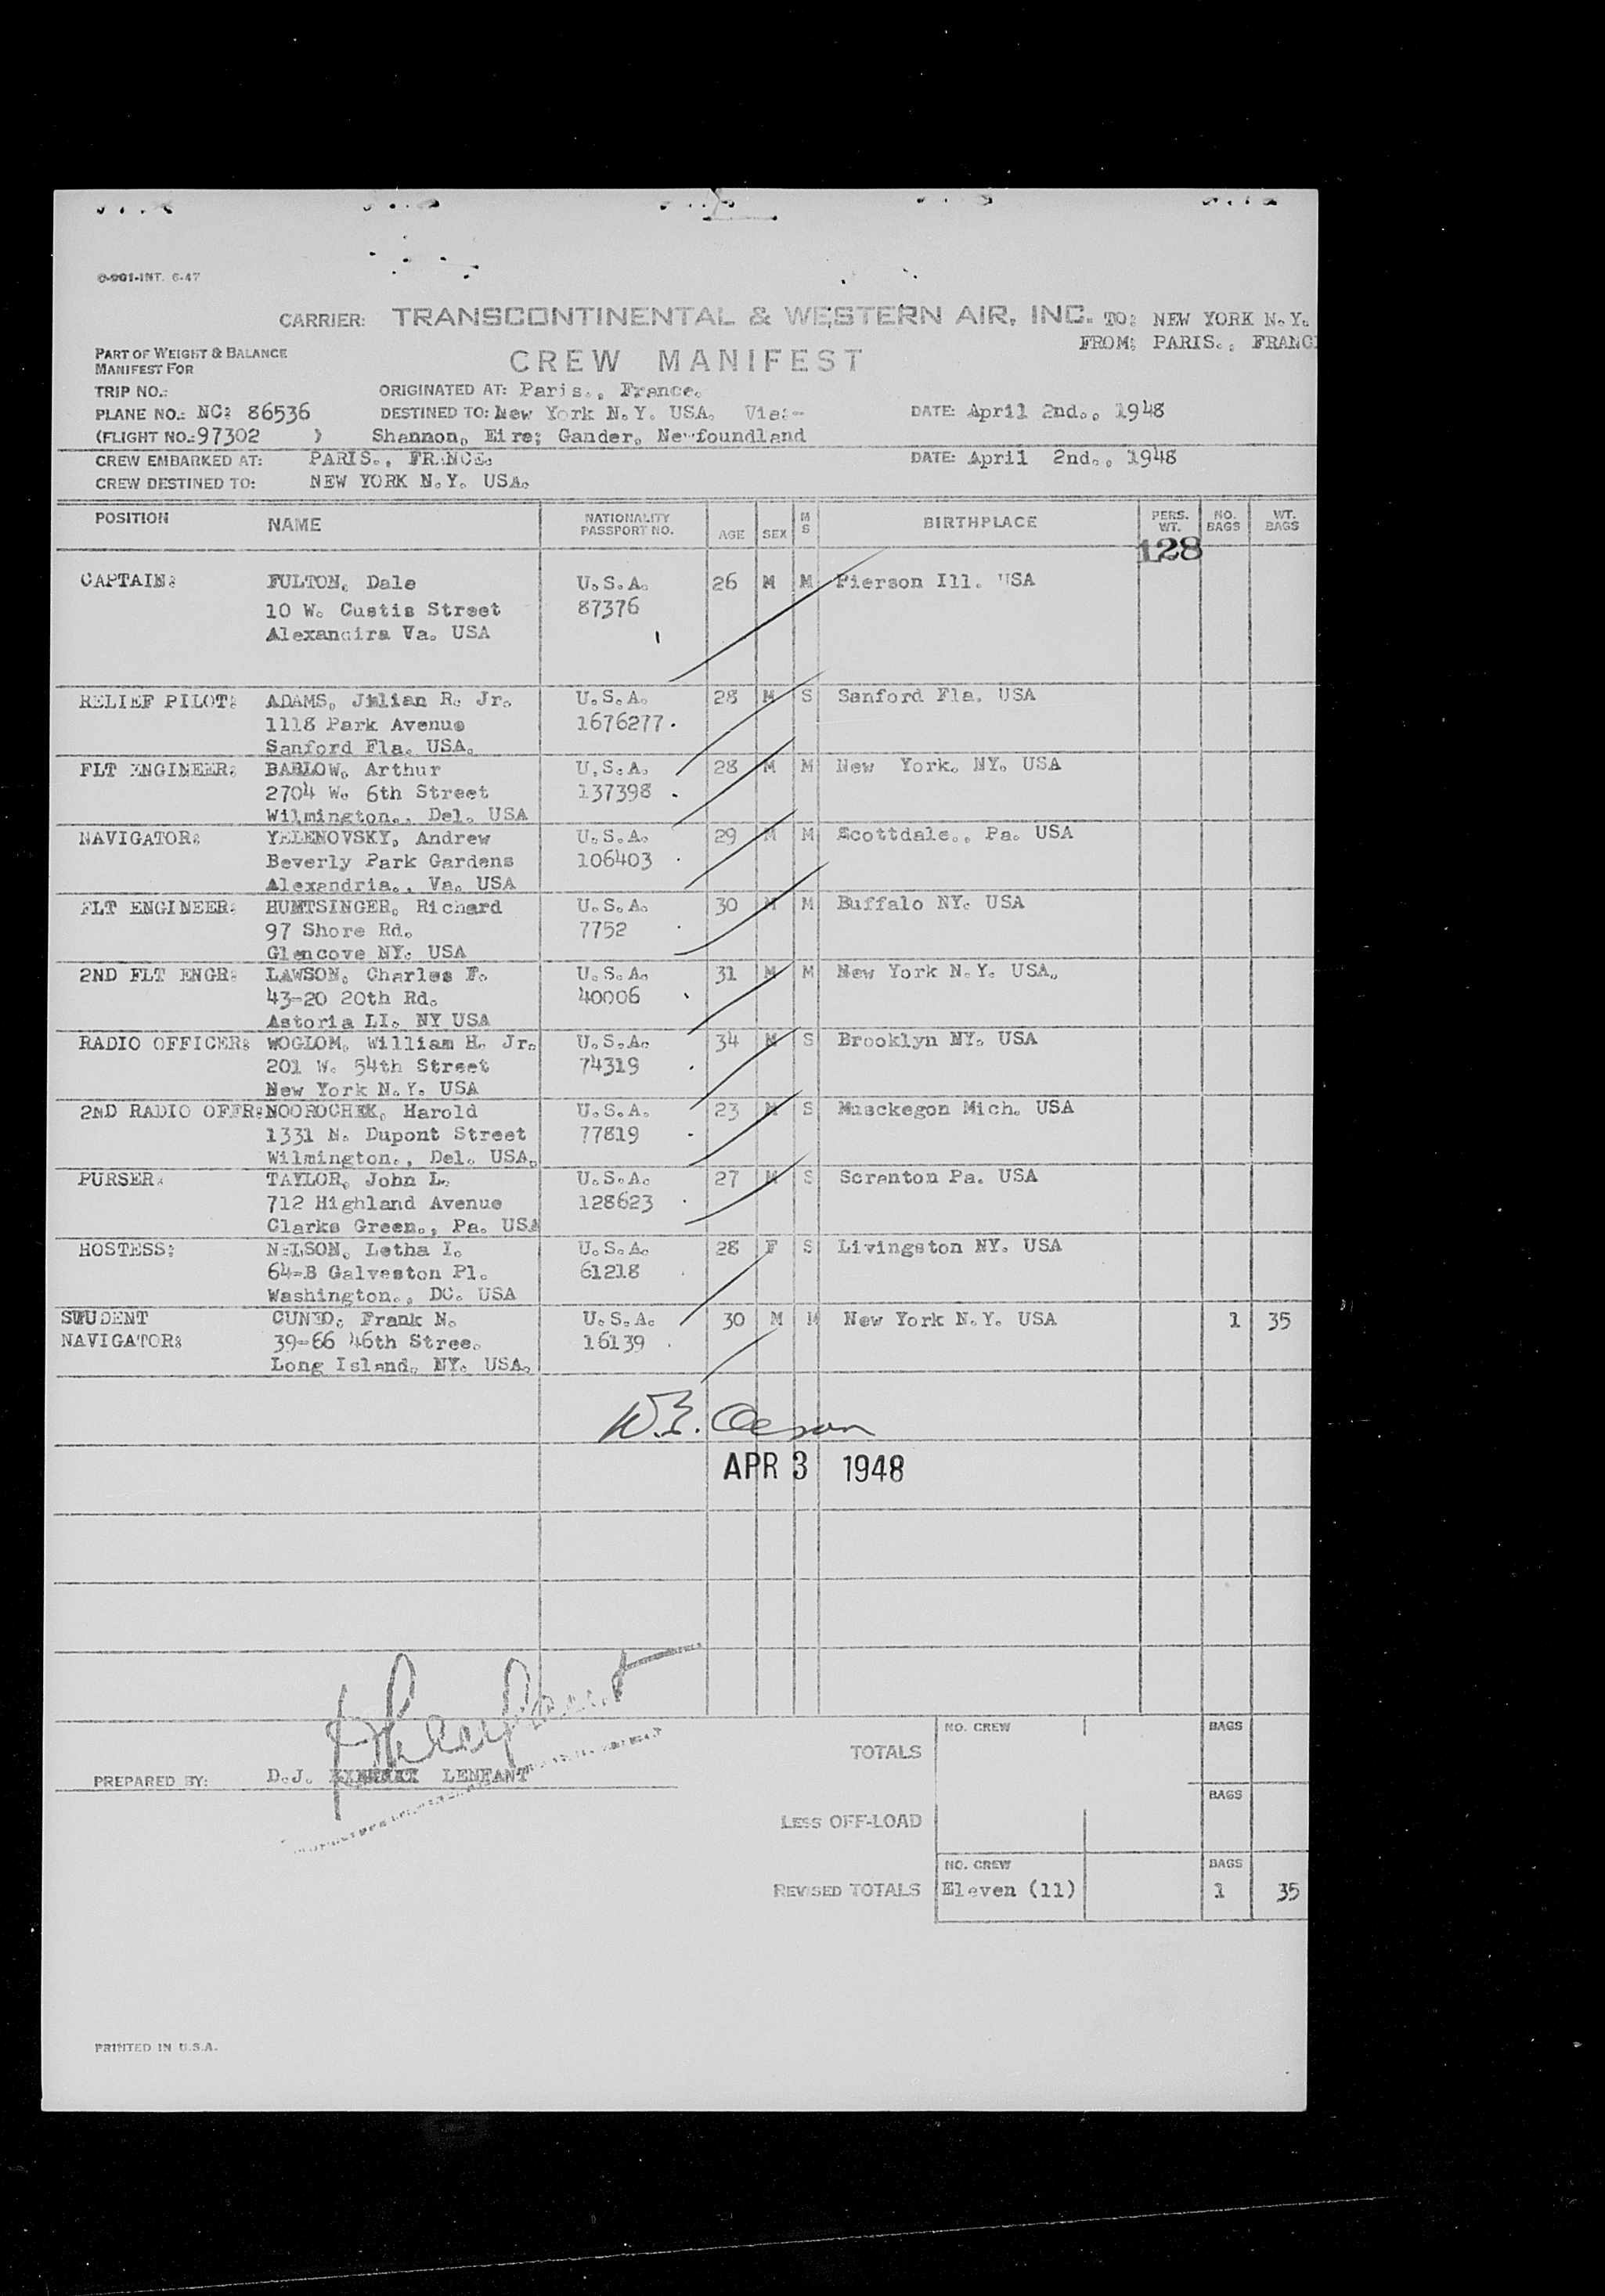 O-001-INT. 6-47
CARRIER: TRANSCONTINENTAL & WESTERN AIR, INC. TO: NEW YORK N.Y.
FROM: PARIS., FRANC
PART OF WEIGHT & BALANCE
MANIFEST FOR
CREW MANIFEST
TRIP NO.: ORIGINATED AT: Paris., France.
PLANE NO.: NC: 86536 DESTINED TO: New York N.Y. USA. Via:- DATE: April 2nd., 1948
(FLIGHT NO.: 97302 ) Shannon, Eire; Gander, Newfoundland
CREW EMBARKED AT: PARIS., FRANCE. DATE: April 2nd., 1948
CREW DESTINED TO: NEW YORK N.Y. USA.
POSITION NAME NATIONALITY PASSPORT NO. AGE SEX M S BIRTHPLACE PERS. WT. NO. BAGS WT. BAGS
128
CAPTAIN: FULTON, Dale U.S.A. 26 M M Pierson Ill. USA
10 W. Custis Street 87376
Alexandira Va. USA
RELIEF PILOT: ADAMS, Julian R. Jr. U.S.A. 28 M S Sanford Fla. USA
1118 Park Avenue 1676277.
Sanford Fla. USA.
FLT ENGINEER: BARLOW, Arthur U.S.A. 28 M M New York. NY. USA
2704 W. 6th Street 137398
Wilmington., Del. USA
NAVIGATOR: YELENOVSKY, Andrew U.S.A. 29 M M Scottdale., Pa. USA
Beverly Park Gardens 106403
Alexandria., Va. USA
FLT ENGINEER: HUMTSINGER, Richard U.S.A. 30 M M Buffalo NY. USA
97 Shore Rd. 7752
Glencove NY. USA
2ND FLT ENGR: LAWSON, Charles F. U.S.A. 31 M M New York N.Y. USA.
43-20 20th Rd. 40006
Astoria LI. NY USA
RADIO OFFICER: WOGLOM, William H. Jr. U.S.A. 34 M S Brooklyn NY. USA
201 W. 54th Street 74319
New York N.Y. USA
2ND RADIO OFFR: NOOROCHEK, Harold U.S.A. 23 M S Musckegon Mich. USA
1331 N. Dupont Street 77819
Wilmington., Del. USA.
PURSER: TAYLOR, John L. U.S.A. 27 M S Scranton Pa. USA
712 Highland Avenue 128623
Clarks Green., Pa. USA
HOSTESS: NELSON, Letha I. U.S.A. 28 F S Livingston NY. USA
64-B Galveston Pl. 61218
Washington., DC. USA
STUDENT CUNEO, Frank N. U.S.A. 30 M M New York N.Y. USA 1 35
NAVIGATOR: 39-66 46th Stree. 16139
Long Island, NY. USA.
APR 3 1948
NO. CREW BAGS
TOTALS
PREPARED BY: D.J. LENFANT
BAGS
LESS OFF-LOAD
NO. CREW BAGS
REVISED TOTALS Eleven (11) 1 35
PRINTED IN U.S.A.